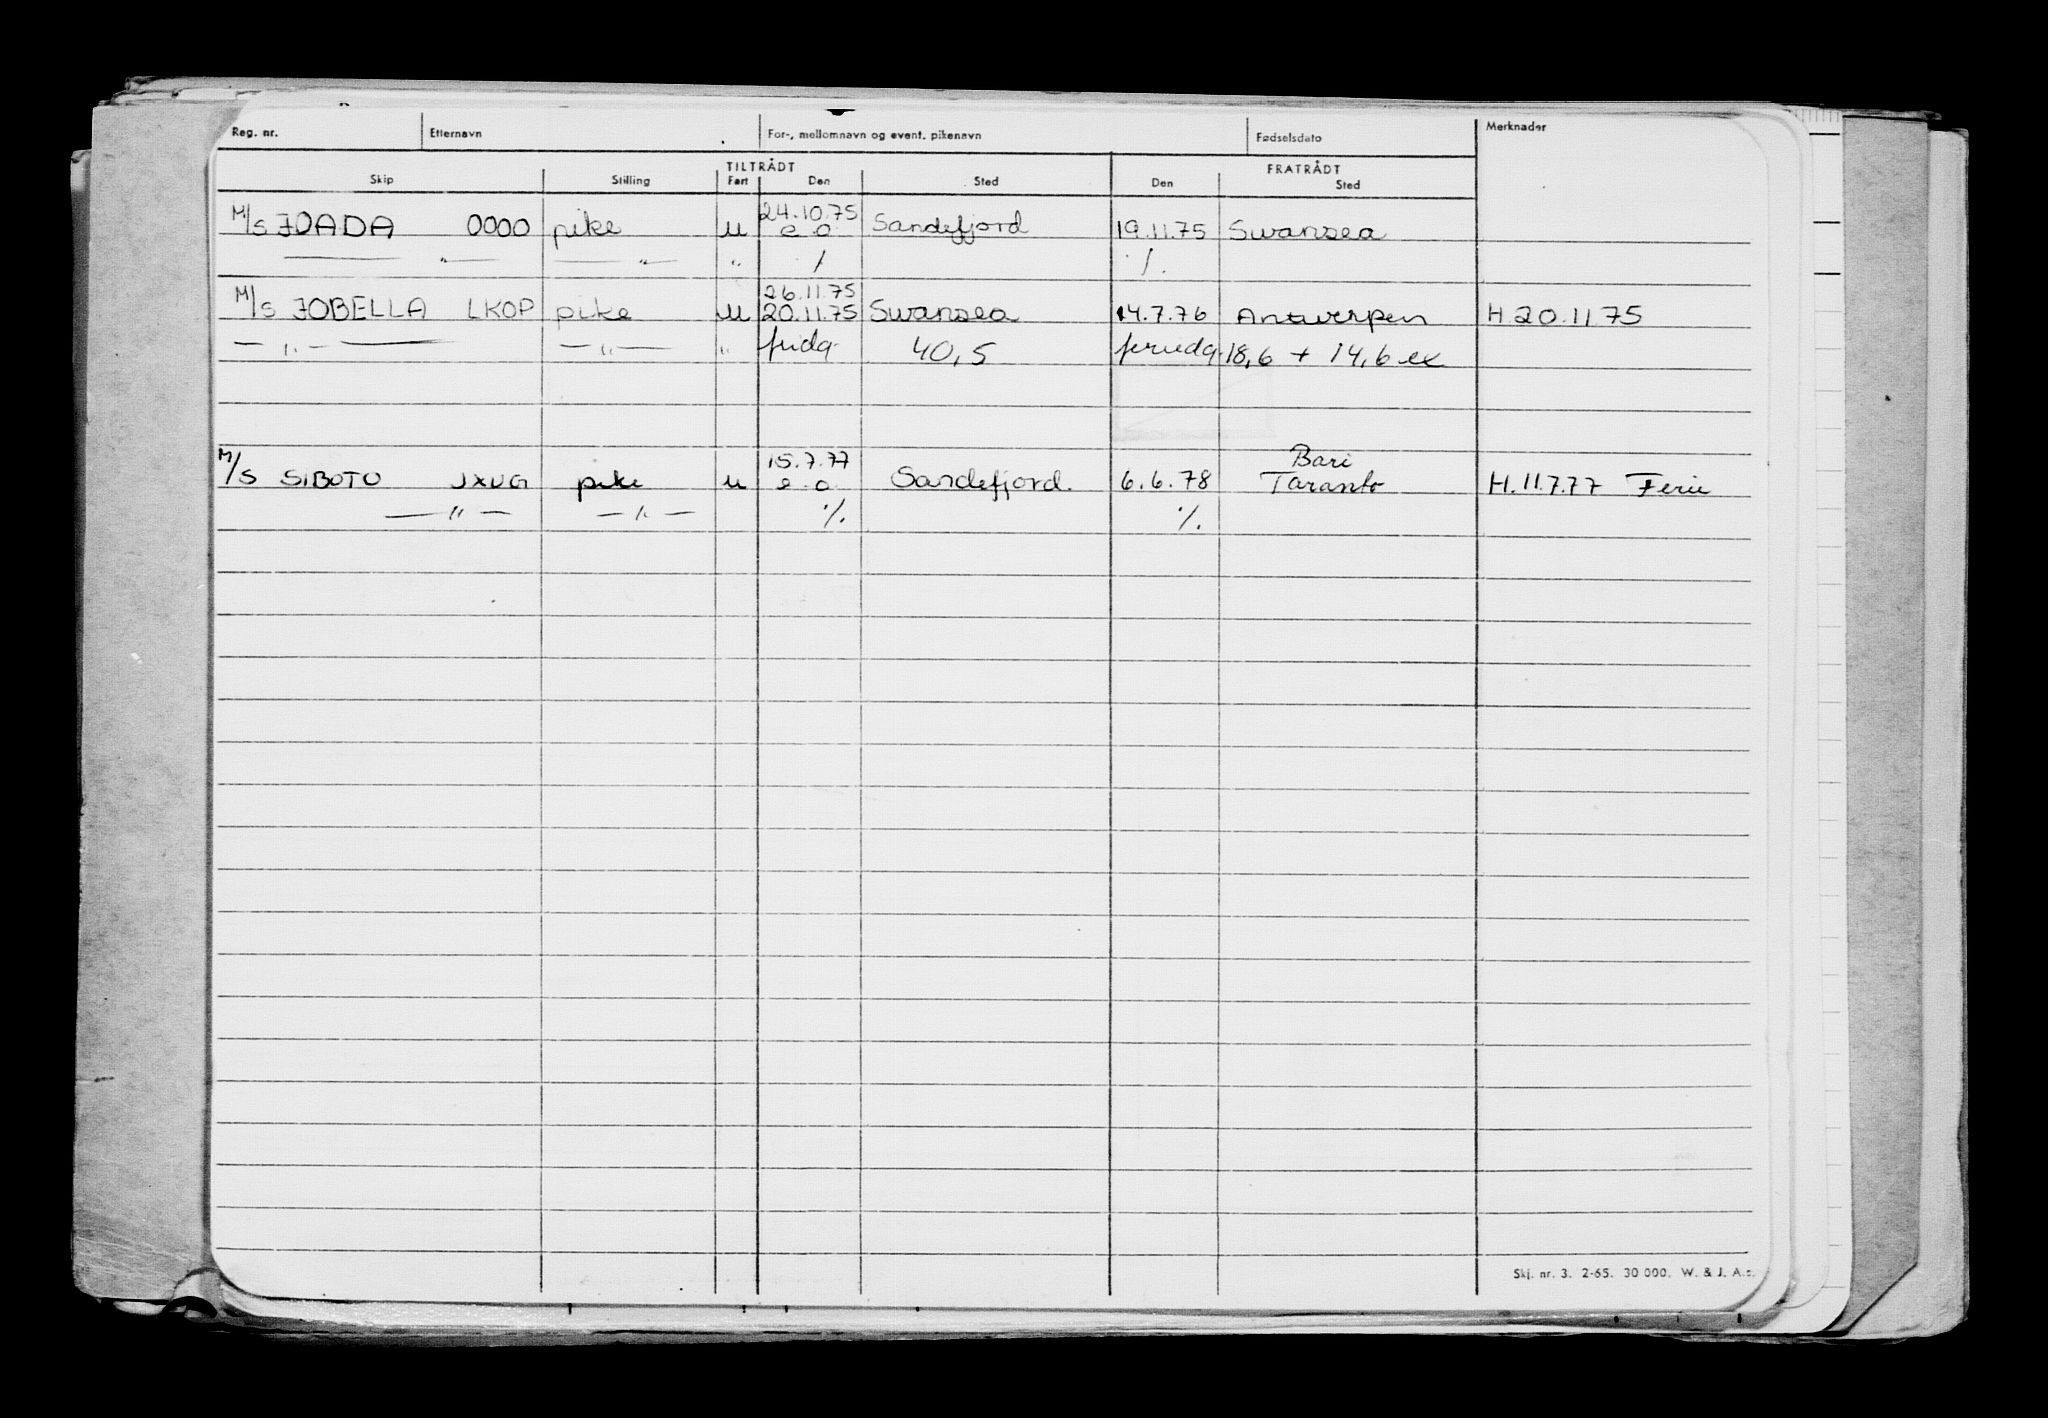 Reg. nr. Etternavn For-, mellomnavn og event. pikenavn Fødselsdato Merknader
TILTRÅDT FRATRÅDT
Skip Stilling Fart Den Sted Den Sted
24.10.75
M/S JOADA OOOO pike u e.o. Sandefjord 19.11.75 Swansea
— " — — " — " / /.
26.11.75
M/S JOBELLA LKOP pike u 20.11.75 Swansea 14.7.76 Antwerpen H 20.11.75
— " — — " — " fridg. 40,5 feriedg. 18,6 + 14,6 ex
15.7.77 Bari
M/S SIBOTO JXUG pike u e.o. Sandefjord. 6.6.78 Taranto H. 11.7.77 Ferie
— " — — " — ./. ./.
Skj. nr. 3. 2-65. 30 000. W. & J. A.s.